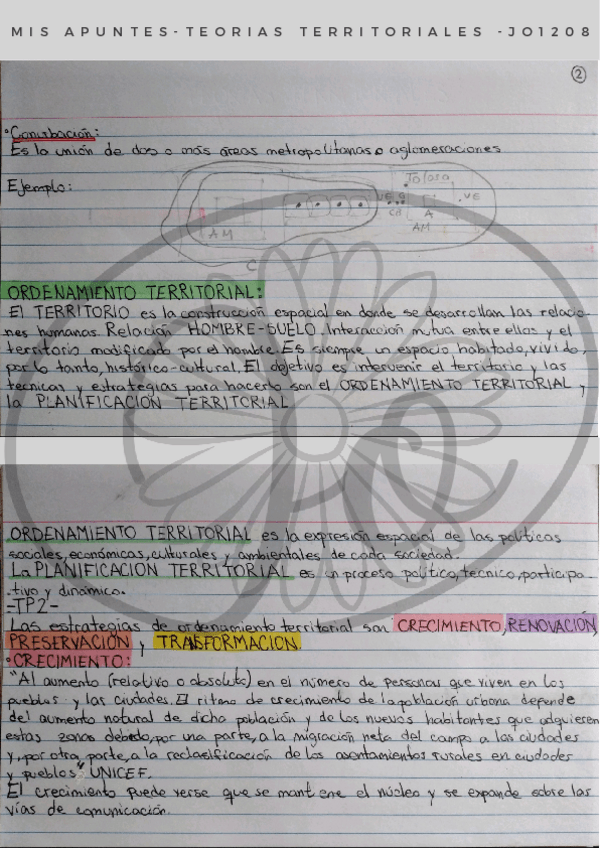 MIS APUNTES-TEORIAS TERRITORIALES -JO1208
2
•Conurbación:
Es la unión de dos o más áreas metropolitanas o aglomeraciones
Ejemplo:
Tolosa
VE
CB
A
AM
AM
C
ORDENAMIENTO TERRITORIAL:
El TERRITORIO es la construcción espacial en donde se desarrollan las relacio-
nes humanas. Relación HOMBRE-SUELO. Interacción mutua entre ellos y el
territorio modificado por el hombre. Es siempre un espacio habitado, vivido,
por lo tanto, histórico-cultural. El objetivo es intervenir el territorio y las
tecnicas y estrategias para hacerlo son el ORDENAMIENTO TERRITORIAL y
la PLANIFICACION TERRITORIAL
ORDENAMIENTO TERRITORIAL es la expresión espacial de las políticas
sociales, económicas, culturales y ambientales de cada sociedad.
La PLANIFICACION TERRITORIAL es un proceso político, técnico, participa-
tivo y dinámico.
-TP2-
Las estrategias de ordenamiento territorial son CRECIMIENTO, RENOVACIÓN,
PRESERVACIÓN y TRANSFORMACION.
•CRECIMIENTO:
"Al aumento (relativo o absoluto) en el número de personas que viven en los
pueblos y las ciudades. El ritmo de crecimiento de la población urbana depende
del aumento natural de dicha población y de los nuevos habitantes que adquieren
estas zonas debido, por una parte, a la migración neta del campo a las ciudades
y, por otra parte, a la reclasificación de los asentamientos rurales en ciudades
y pueblos" UNICEF.
El crecimiento puede verse que se mantiene el núcleo y se expande sobre las
vías de comunicación.